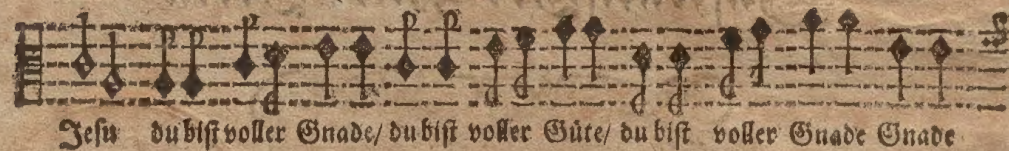 Jesu du bist voller Gnade/ du bist voller Güte/ du bist voller Gnade Gnade